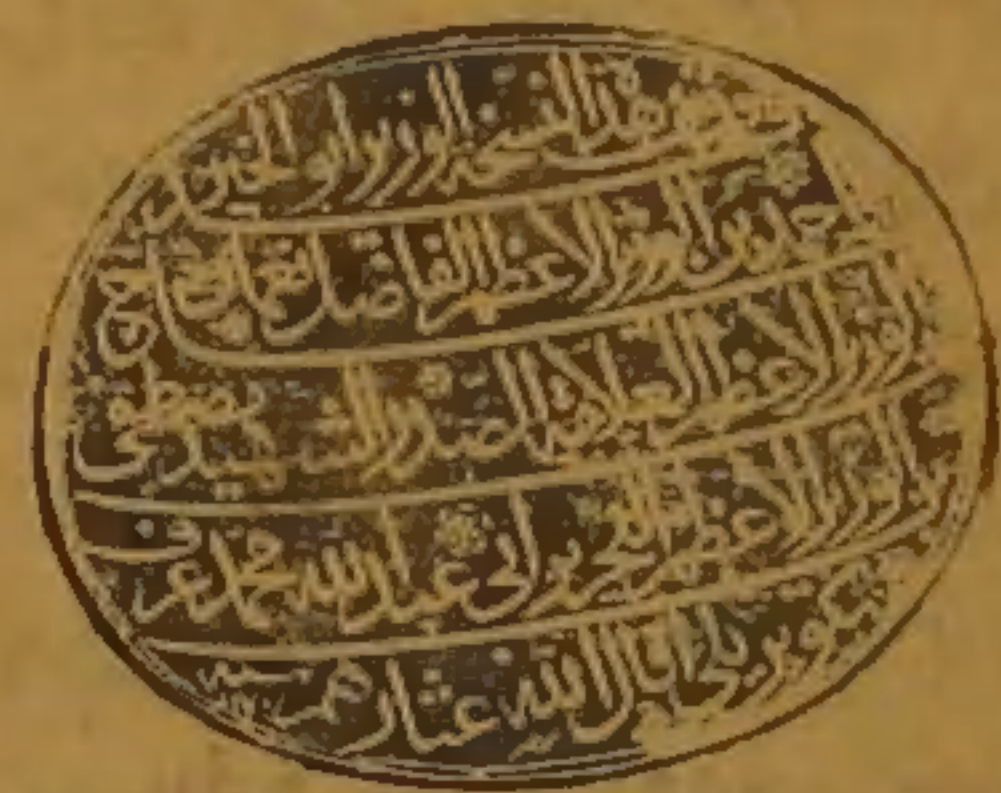 هذا النسخة الوزير ابو الخير
احمد بن الوزير الاعظم الفاضل نعمان بن
الوزير الاعظم العلامة الصدر الشهيد مصطفى
بن الوزير الاعظم النحرير ابى عبد الله محمد عرف
بكوپريلى اقال الله عثارهم